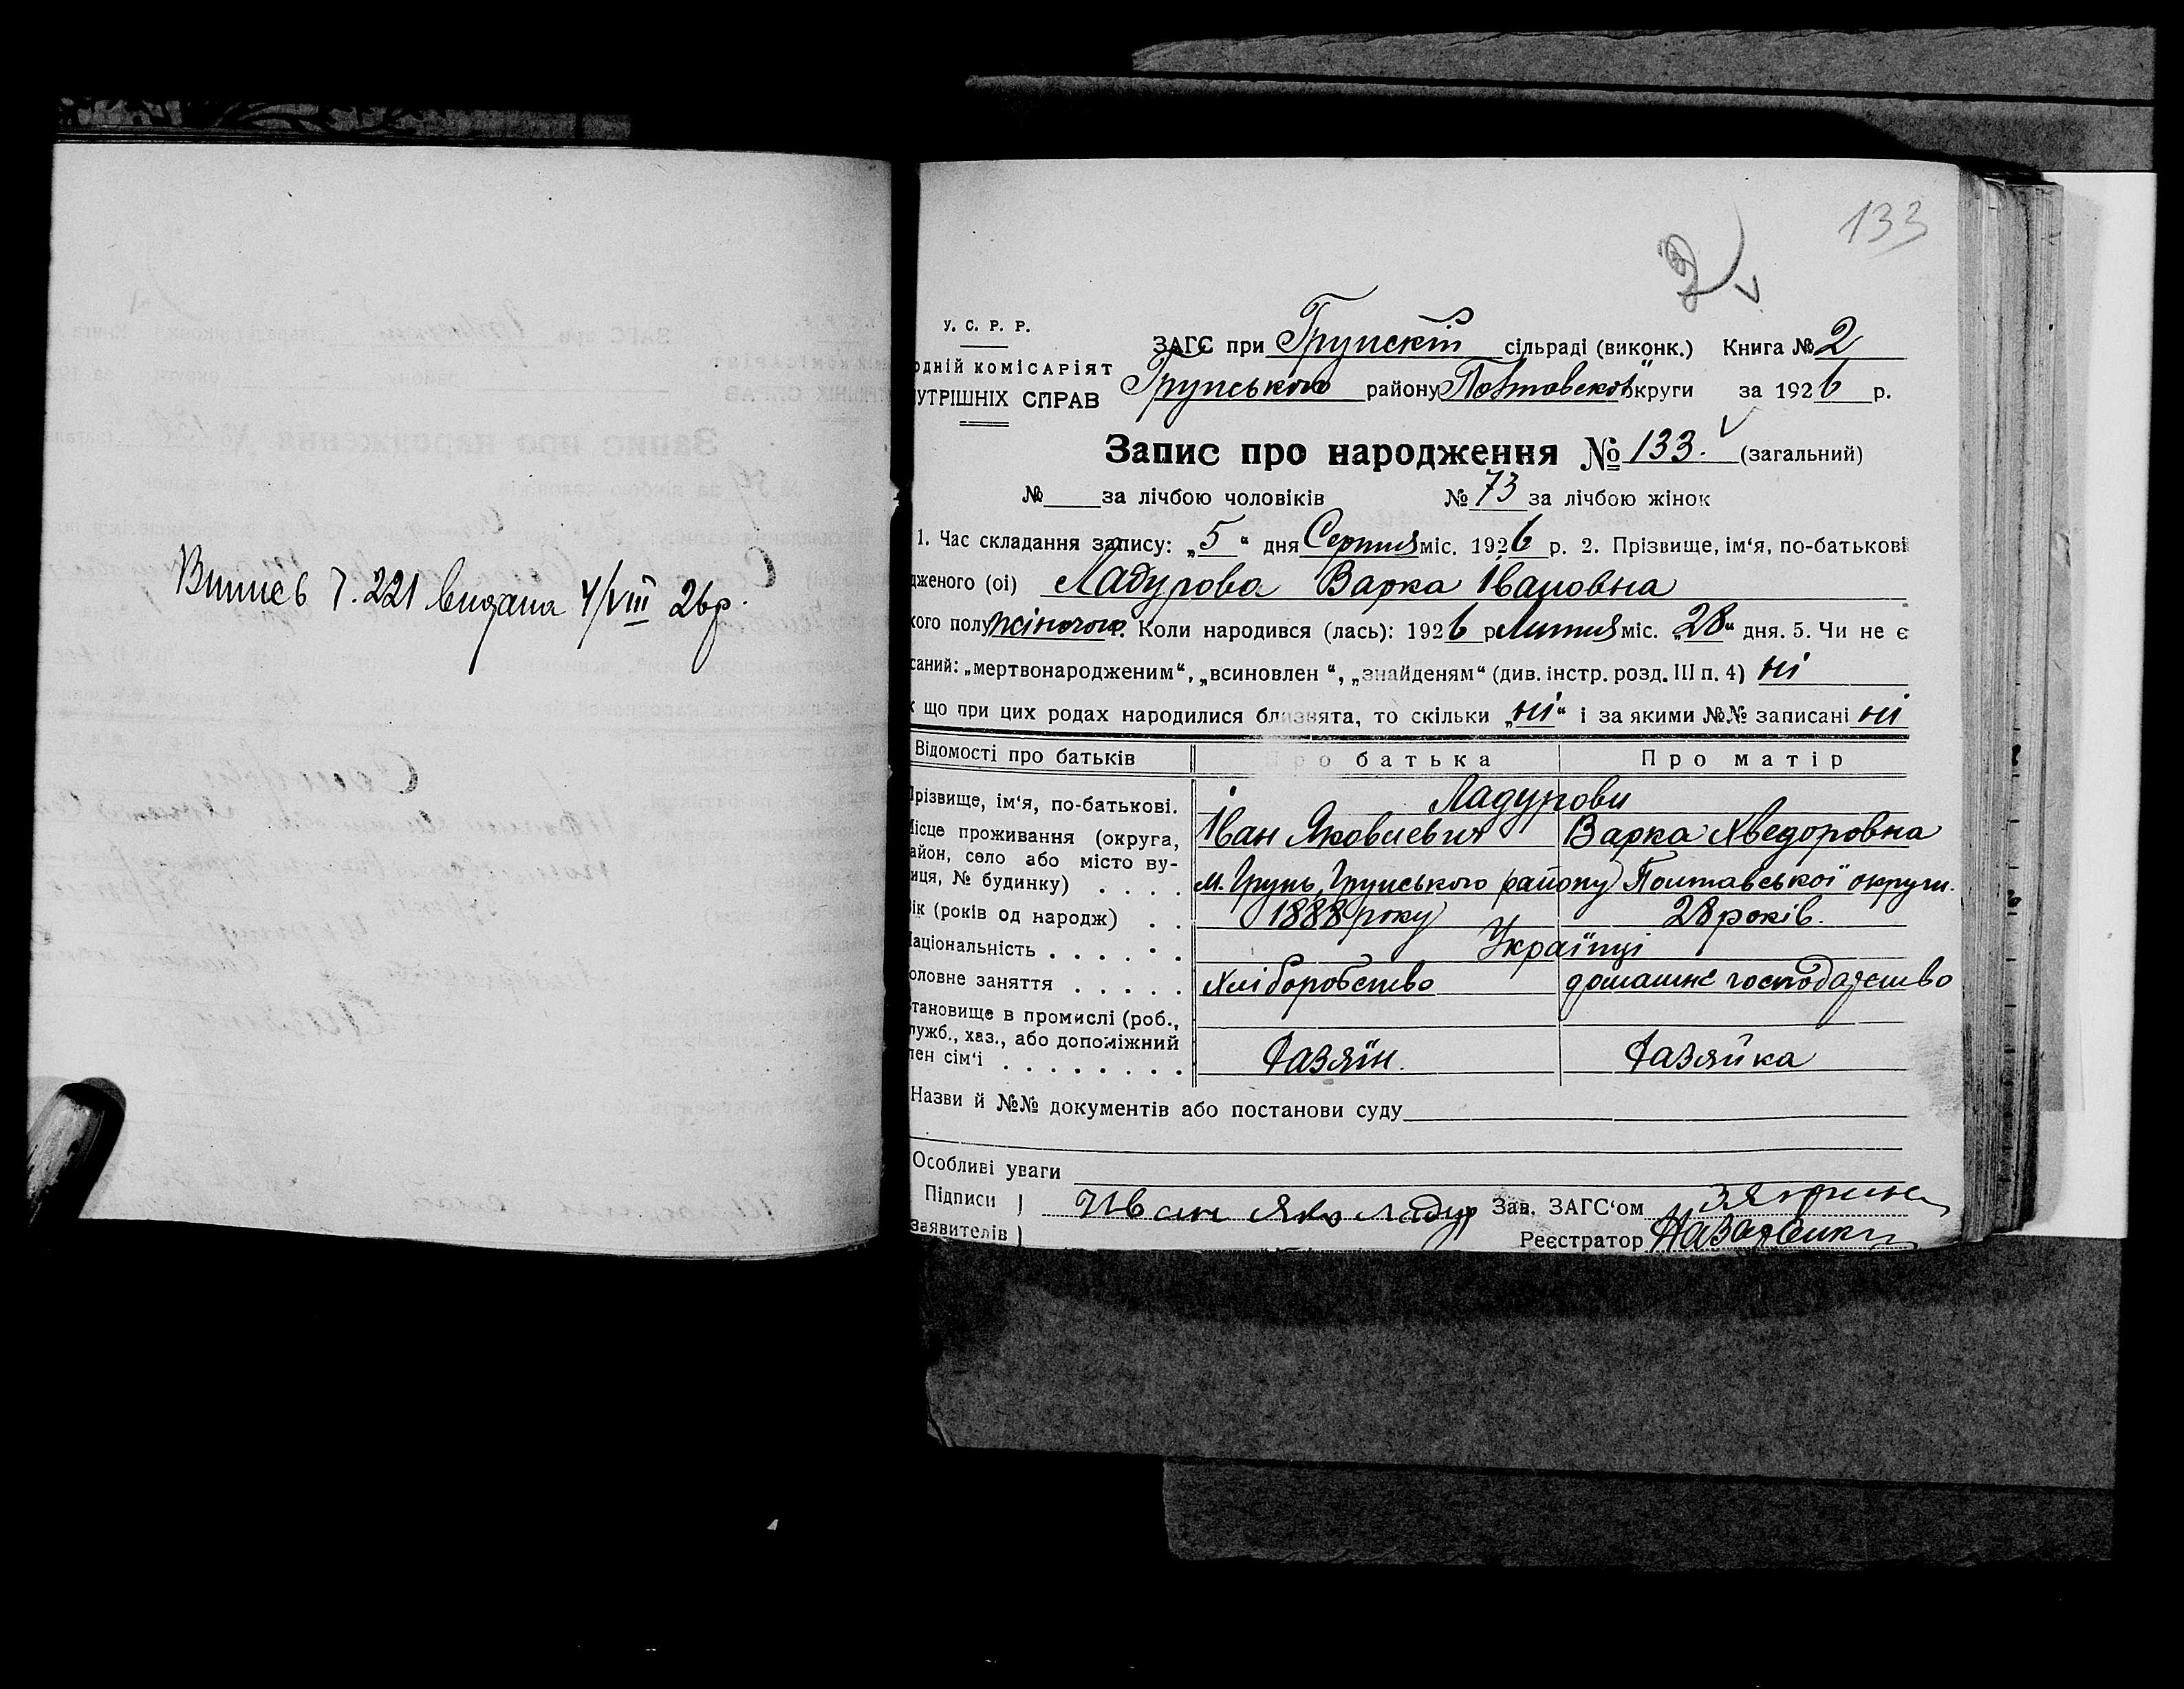 Випис Ч. 221 видана 4/VIII 26р.
133
2
У. С. Р. Р.
ОДНІЙ КОМІСАРІЯТ
УТРІШНІХ СПРАВ
ЗАГС при Грунскій сільраді (виконк.) Книга № 2
Грунського району Полтавськой округи за 1926 р.
Запис про народження № 133. (загальний)
№ за лічбою чоловіків № 73 за лічбою жінок
1. Час складання запису: „5“ дня Серпня міс. 1926 р. 2. Прізвище, ім‘я, по-батькові
дженого (ої) Ладурова Варка Івановна
кого полу жіночого. Коли народився (лась): 1926 р Липня міс. „28“ дня. 5. Чи не є
саний: „мертвонародженим“, „всиновлен “, „знайденям“ (див. інстр. розд. III п. 4) ні
що при цих родах народилися близнята, то скільки „ні“ і за якими №№ записані ні
Відомості про батьків Про батька Про матір
Прізвище, ім‘я, по-батькові. Ладурови
Місце проживання (округа, Іван Яковлевич Варка Хведоровна
айон, село або місто ву-
иця, № будинку) . . . . м. Грунь, Грунського району Полтавської округи.
ік (років од народж) . . 1888 року 28 років.
аціональність . . . . . . Українці
оловне заняття . . . . . хліборобство домашнє господарство
тановище в промислі (роб.,
лужб., хаз., або допоміжний
лен сім‘ї . . . . . . . . Хазяїн. Хазяйка
Назви й №№ документів або постанови суду
Особливі уваги
Підписи } Иван Яко Ладур Зав. ЗАГС‘ом
Заявителів } Реєстратор